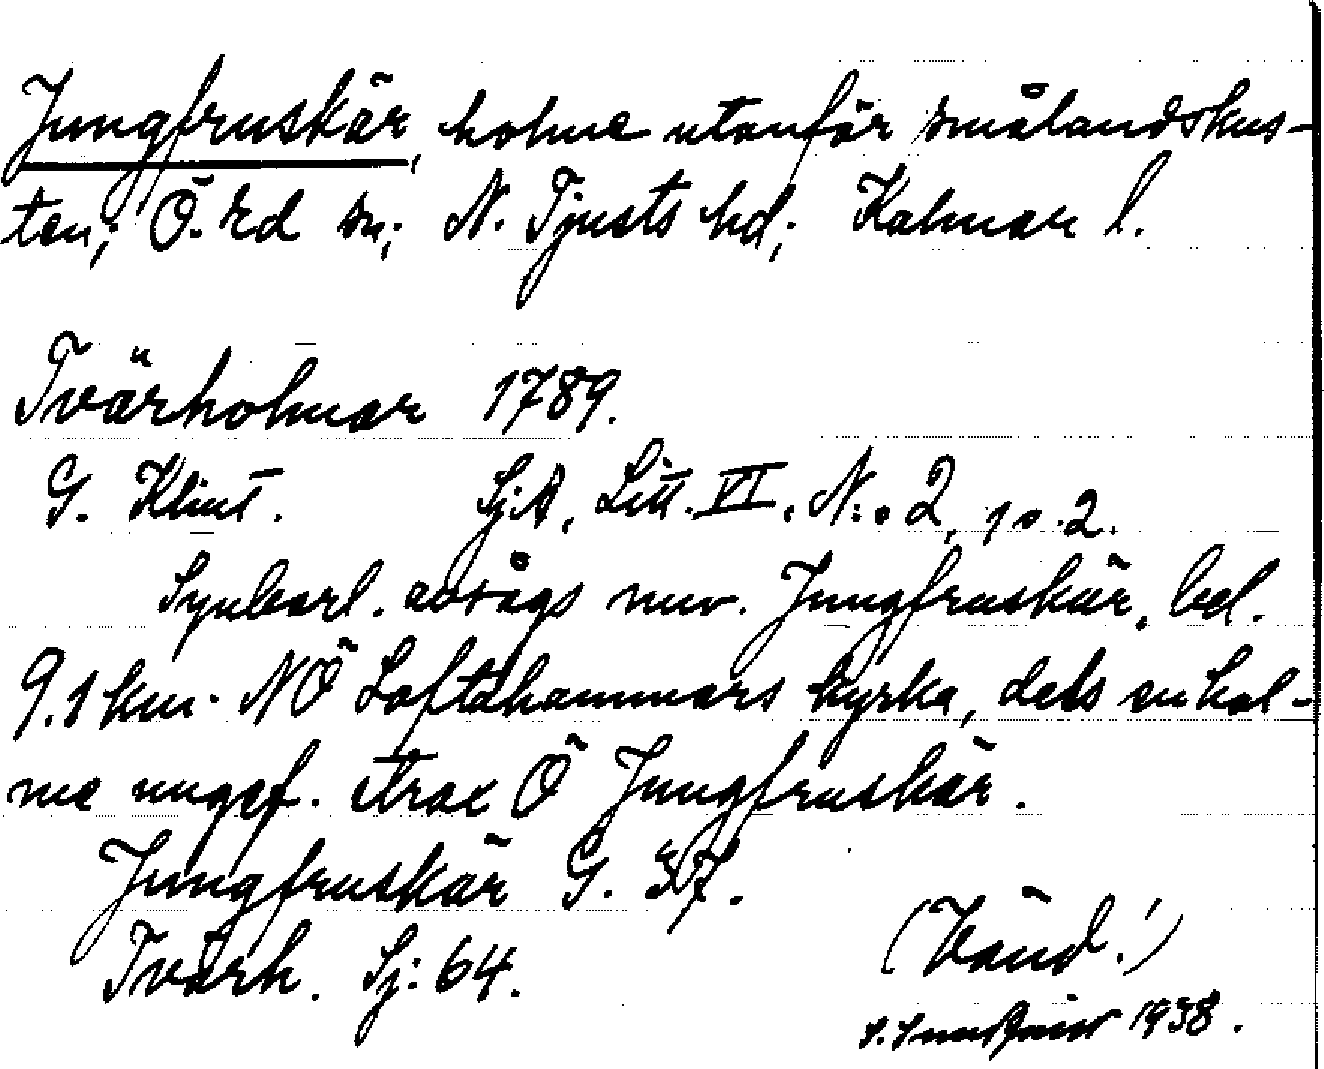 Jungfruskär, holme utanför smålandskus-
ten; Ö. Ed sn; N. Tjusts hd; Kalmar l.
Tvärholmar 1789.
G. Klint. SjA, Litt. VI, N:o 2, 1 o. 2.
Synbarl. avsågs nuv. Jungfruskär, bel.
9.1 km. NÖ Loftahammars kyrka, dels en hol-
me ungef. strax Ö Jungfruskär.
Jungfruskär G. 37.
Tvärh. Sj: 64.
(Vänd!)
1938.